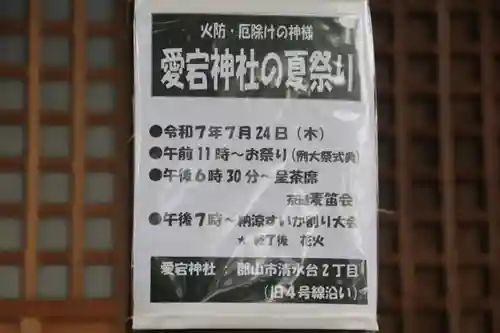 火防・厄除けの神様
愛宕神社の夏祭り
●令和7年7月24日（木）
●午前11時～お祭り（例大祭式典）
●午後6時30分～呈茶席
茶道麦笛会
●午後7時～納涼すいか割り大会
終了後 花火
愛宕神社：郡山市清水台2丁目
（旧4号線沿い）